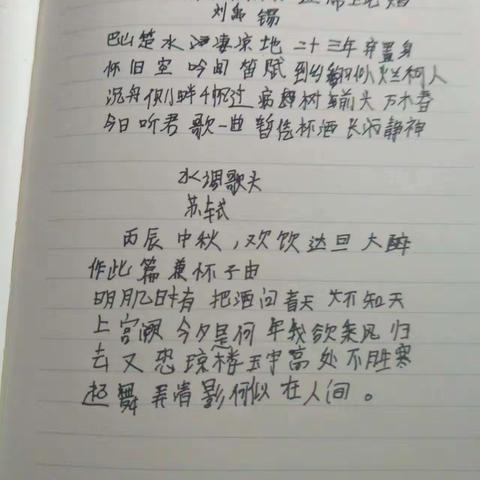 刘禹锡
巴山楚水凄凉地 二十三年弃置身
怀旧空吟闻笛赋 到乡翻似烂柯人
沉舟侧畔千帆过 病树前头万木春
今日听君歌一曲 暂凭杯酒长精神
水调歌头
苏轼
丙辰中秋,欢饮达旦大醉
作此篇兼怀子由
明月几时有 把酒问青天 不知天
上宫阙 今夕是何年我欲乘风归
去又恐琼楼玉宇高处不胜寒
起舞弄清影何似在人间。